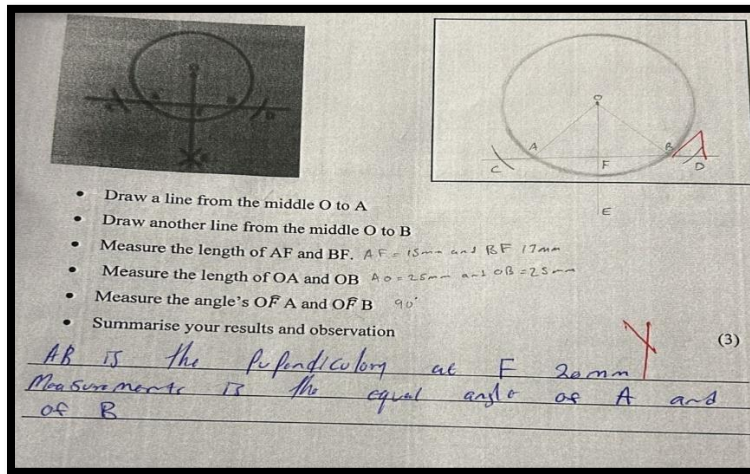 O
A
B
C
F
D
E
• Draw a line from the middle O to A
• Draw another line from the middle O to B
• Measure the length of AF and BF. AF = 15mm and BF 17mm
• Measure the length of OA and OB AO = 25mm and OB = 25mm
• Measure the angle's OF̂ A and OF̂ B 90°
• Summarise your results and observation
(3)
AB is the Pupendiculony at F 20mm
Measurements is the equal angle of A and
of B